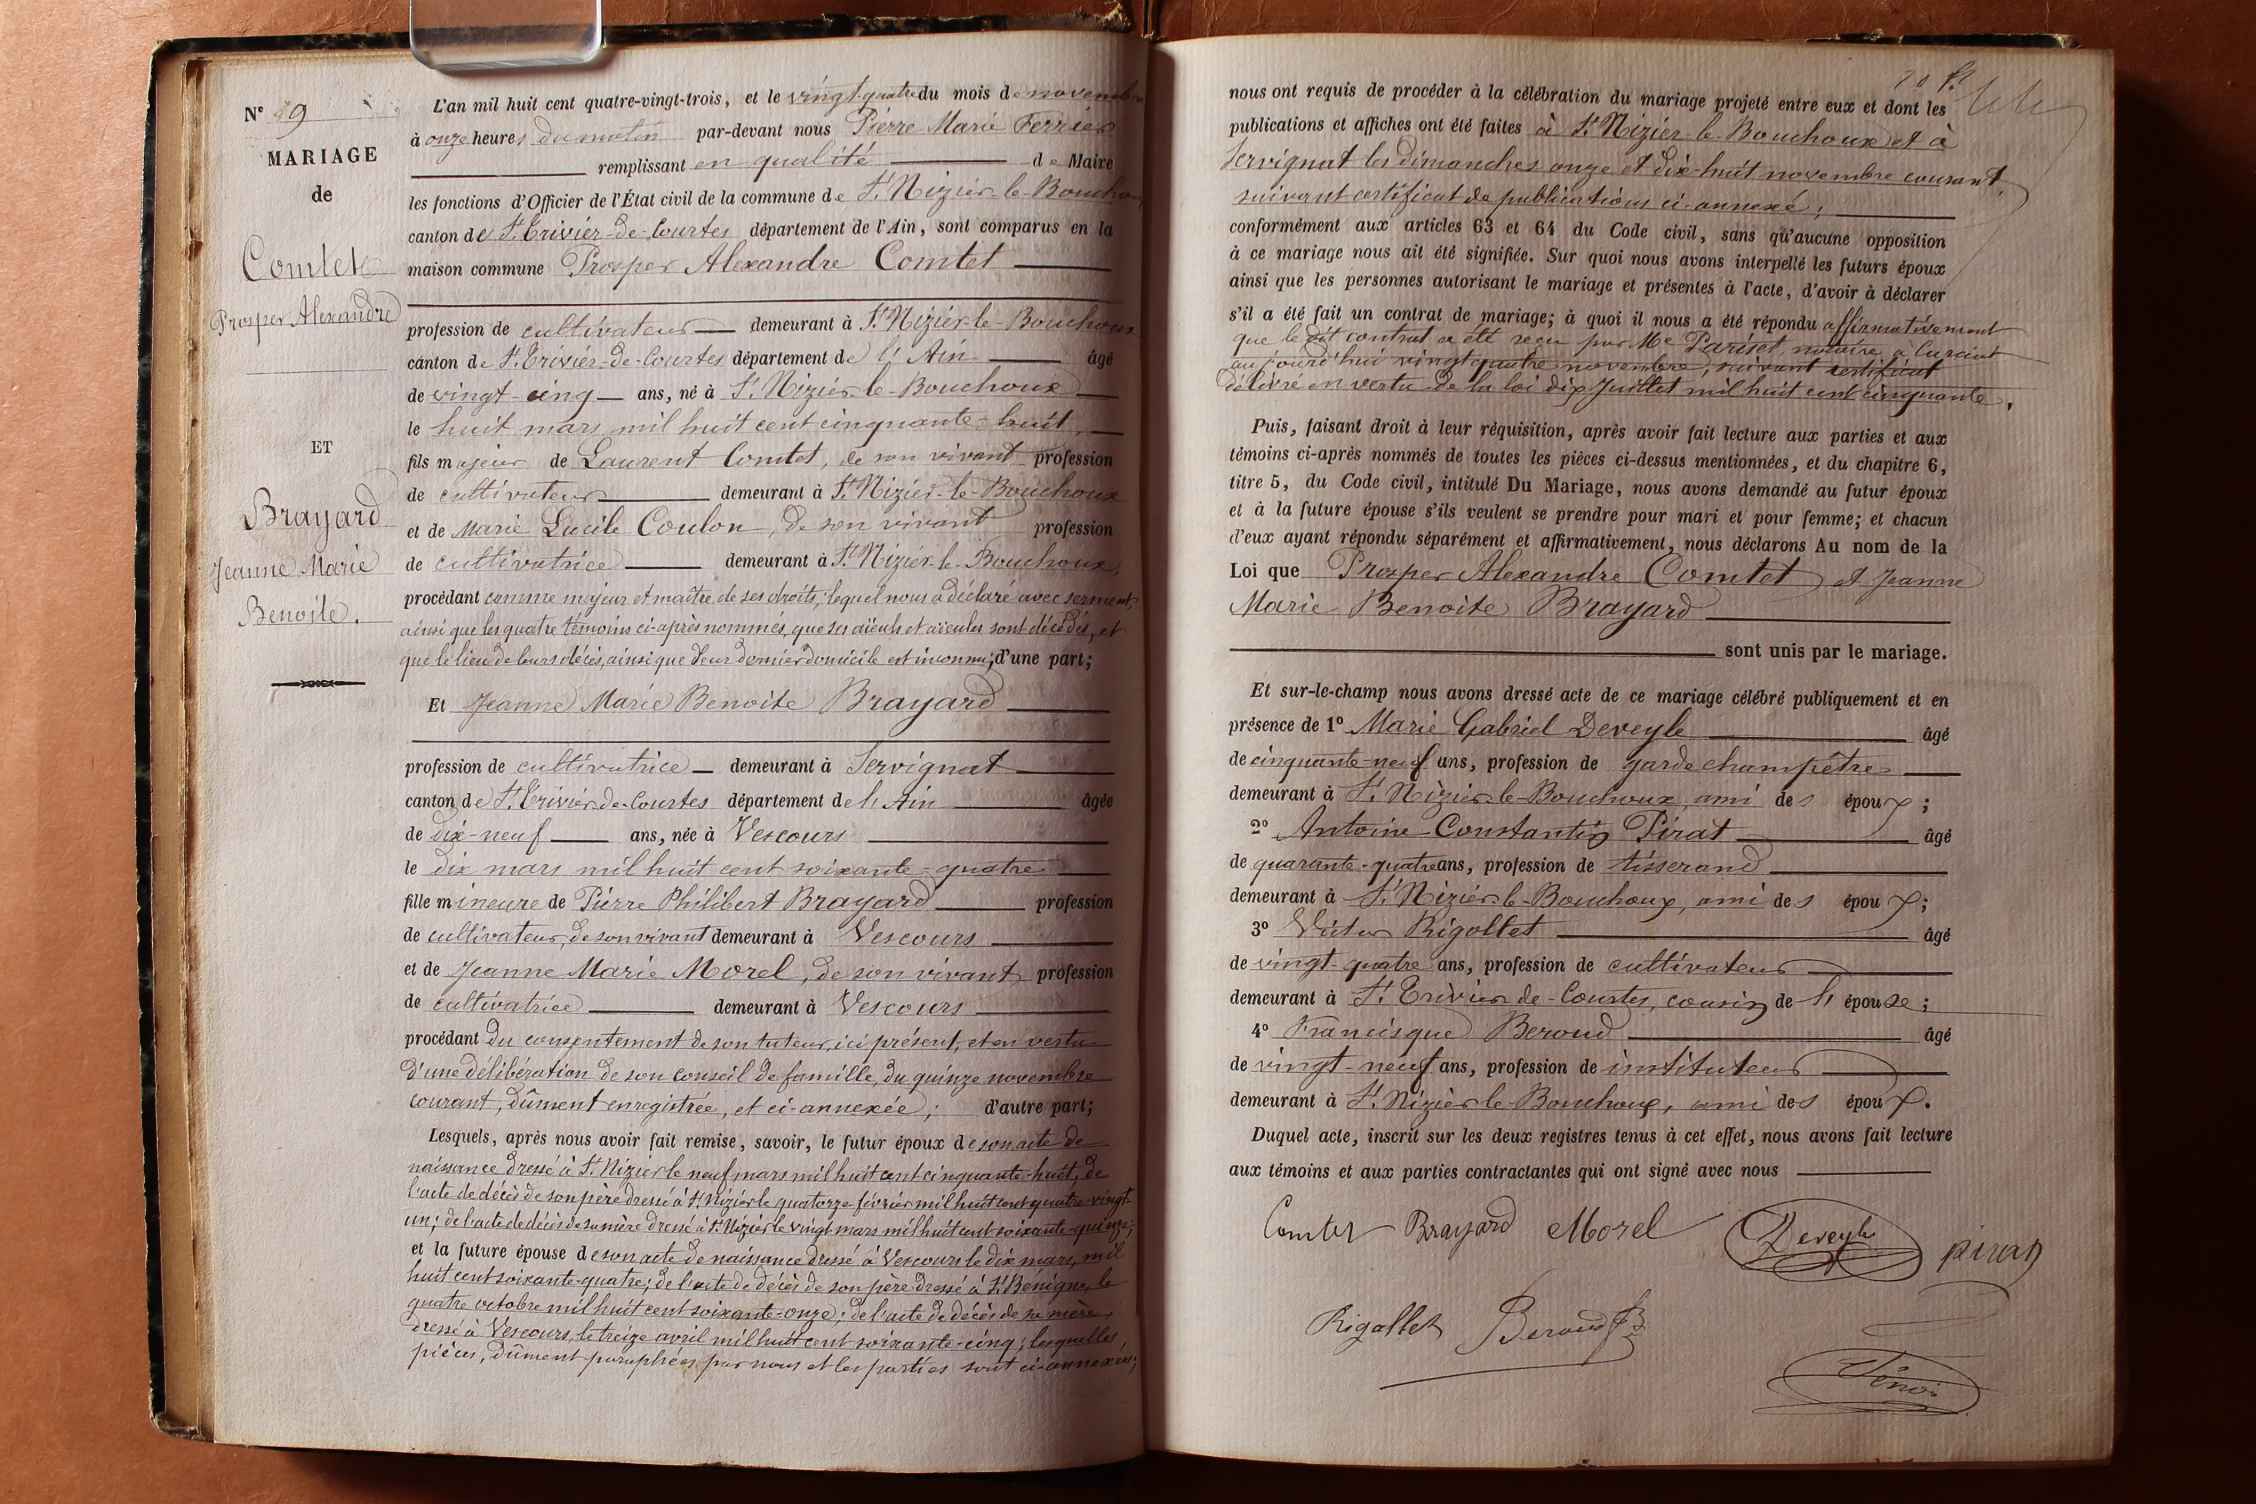 N° 9
MARIAGE
de
Comtet
Prosper Alexandre
ET
Brayard
Jeanne Marie
Benoite.
L'an mil huit cent quatre-vingt-trois, et le vingt-quatre du mois de novembre
à onze heures du matin par-devant nous Pierre Marie Ferrier
remplissant en qualité de Maire
les fonctions d'Officier de l'État civil de la commune de St Nizier-le-Bouchoux
canton de St Trivier-de-Courtes département de l'Ain, sont comparus en la
maison commune Prosper Alexandre Comtet
profession de cultivateur demeurant à St Nizier-le-Bouchoux
canton de St Trivier-de-Courtes département de l'Ain âgé
de vingt-cinq ans, né à St Nizier-le-Bouchoux
le huit mars mil huit cent cinquante-huit,
fils majeur de Laurent Comtet, de son vivant profession
de cultivateur demeurant à St Nizier-le-Bouchoux
et de Marie Lucile Coulon, de son vivant profession
de cultivatrice demeurant à St Nizier-le-Bouchoux,
procédant comme majeur et maître de ses droits, lequel nous a déclaré avec serment,
ainsi que les quatre témoins ci-après nommés, que ses aïeuls et aïeules sont décédés, et
que le lieu de leurs décès, ainsi que leur dernier domicile est inconnu; d'une part;
Et Jeanne Marie Benoite Brayard
profession de cultivatrice demeurant à Servignat
canton de St Trivier-de-Courtes département de l'Ain âgée
de dix-neuf ans, née à Vescours
le dix mars mil huit cent soixante-quatre
fille mineure de Pierre Philibert Brayard profession
de cultivateur, de son vivant demeurant à Vescours
et de Jeanne Marie Morel, de son vivant profession
de cultivatrice demeurant à Vescours
procédant du consentement de son tuteur, ici présent, et en vertu
d'une délibération de son conseil de famille, du quinze novembre
courant, dûment enregistrée, et ci-annexée; d'autre part;
Lesquels, après nous avoir fait remise, savoir, le futur époux de son acte de
naissance dressé à St Nizier le neuf mars mil huit cent cinquante-huit, de
l'acte de décès de son père dressé à St Nizier le quatorze février mil huit cent quatre-vingt-
un; de l'acte de décès de sa mère dressé à St Nizier le vingt mars mil huit cent soixante-quinze;
et la future épouse de son acte de naissance dressé à Vescours le dix mars, mil
huit cent soixante-quatre; de l'acte de décès de son père dressé à St Bénigne, le
quatre octobre mil huit cent soixante-onze; de l'acte de décès de sa mère
dressé à Vescours, le treize avril mil huit cent soixante-cinq; lesquelles
pièces, dûment paraphées par nous et les parties sont ci-annexées;
nous ont requis de procéder à la célébration du mariage projeté entre eux et dont les
publications et affiches ont été faites à St Nizier-le-Bouchoux et à
Servignat les dimanches onze et dix-huit novembre courant,
suivant certificat de publications ci-annexé;
conformément aux articles 63 et 64 du Code civil, sans qu'aucune opposition
à ce mariage nous ait été signifiée. Sur quoi nous avons interpellé les futurs époux
ainsi que les personnes autorisant le mariage et présentes à l'acte, d'avoir à déclarer
s'il a été fait un contrat de mariage; à quoi il nous a été répondu affirmativement
que le dit contrat a été reçu par Me Pariset, notaire à Curciat
aujourd'hui vingt quatre novembre, suivant certificat
délivré en vertu de la loi dix Juillet mil huit cent cinquante.
Puis, faisant droit à leur réquisition, après avoir fait lecture aux parties et aux
témoins ci-après nommés de toutes les pièces ci-dessus mentionnées, et du chapitre 6,
titre 5, du Code civil, intitulé Du Mariage, nous avons demandé au futur époux
et à la future épouse s'ils veulent se prendre pour mari et pour femme; et chacun
d'eux ayant répondu séparément et affirmativement, nous déclarons Au nom de la
Loi que Prosper Alexandre Comtet et Jeanne
Marie Benoite Brayard
sont unis par le mariage.
Et sur-le-champ nous avons dressé acte de ce mariage célébré publiquement et en
présence de 1° Marie Gabriel Deveyle âgé
de cinquante-neuf ans, profession de garde champêtre
demeurant à St Nizier-le-Bouchoux, ami des époux;
2° Antoine Constantin Pirat âgé
de quarante-quatre ans, profession de tisserand
demeurant à St Nizier-le-Bouchoux, ami des époux;
3° Victor Rigollet âgé
de vingt-quatre ans, profession de cultivateur
demeurant à St Trivier-de-Courtes, cousin de l'épouse;
4° Francisque Beroud âgé
de vingt-neuf ans, profession de instituteur
demeurant à St Nizier-le-Bouchoux, ami des époux.
Duquel acte, inscrit sur les deux registres tenus à cet effet, nous avons fait lecture
aux témoins et aux parties contractantes qui ont signé avec nous
Comtet Brayard Morel Deveyle Pirat
Rigollet Beroud